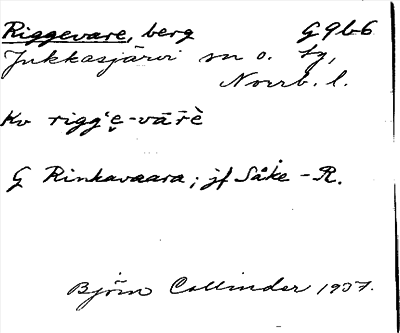 Riggevare, berg G9b6
Jukkasjärvi sn o. tg,
Norrb. l.
Kv rigg'e̬-vārè
G Rinkavaara; jf Såke-R.
Björn Collinder 1957.